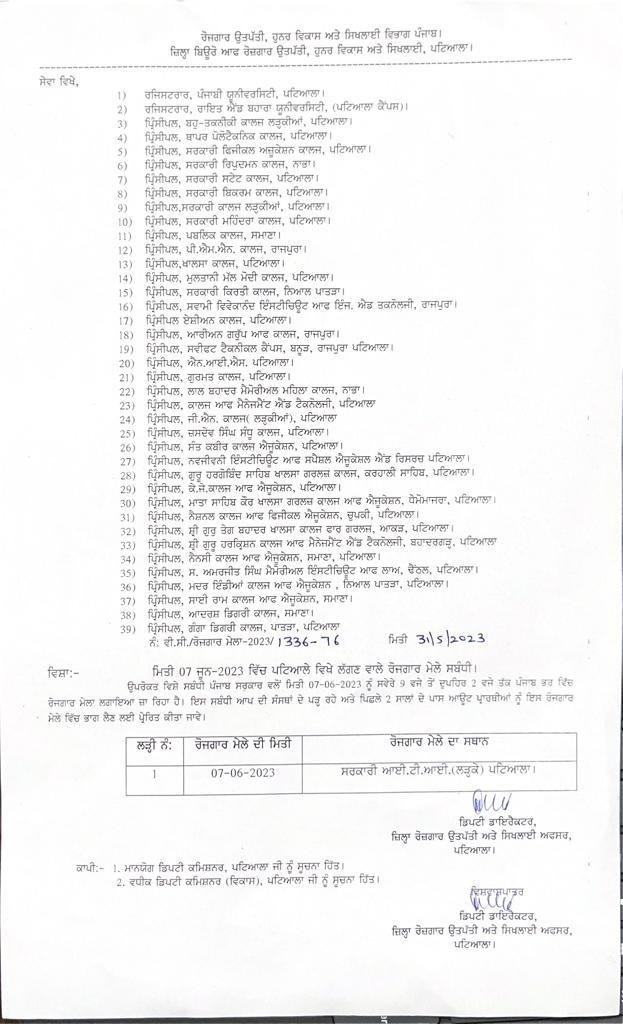 ਰੋਜਗਾਰ ਉਤਪੱਤੀ, ਹੁਨਰ ਵਿਕਾਸ ਅਤੇ ਸਿਖਲਾਈ ਵਿਭਾਗ ਪੰਜਾਬ।
ਜ਼ਿਲ੍ਹਾ ਬਿਊਰੋ ਆਫ ਰੋਜ਼ਗਾਰ ਉਤਪੱਤੀ, ਹੁਨਰ ਵਿਕਾਸ ਅਤੇ ਸਿਖਲਾਈ, ਪਟਿਆਲਾ।
ਸੇਵਾ ਵਿਖੇ,
1) ਰਜਿਸਟਰਾਰ, ਪੰਜਾਬੀ ਯੂਨੀਵਰਸਿਟੀ, ਪਟਿਆਲਾ।
2) ਰਜਿਸਟਰਾਰ, ਰਾਇਤ ਐਂਡ ਬਹਾਰਾ ਯੂਨੀਵਰਸਿਟੀ, (ਪਟਿਆਲਾ ਕੈਂਪਸ)।
3) ਪ੍ਰਿੰਸੀਪਲ, ਬਹੁ-ਤਕਨੀਕੀ ਕਾਲਜ ਲੜ੍ਹਕੀਆਂ, ਪਟਿਆਲਾ।
4) ਪ੍ਰਿੰਸੀਪਲ, ਥਾਪਰ ਪੋਲੋਟੈਕਨਿਕ ਕਾਲਜ, ਪਟਿਆਲਾ।
5) ਪ੍ਰਿੰਸੀਪਲ, ਸਰਕਾਰੀ ਫਿਜੀਕਲ ਅਜੂਕੇਸ਼ਨ ਕਾਲਜ, ਪਟਿਆਲਾ।
6) ਪ੍ਰਿੰਸੀਪਲ, ਸਰਕਾਰੀ ਰਿਪੁਦਮਨ ਕਾਲਜ, ਨਾਭਾ।
7) ਪ੍ਰਿੰਸੀਪਲ, ਸਰਕਾਰੀ ਸਟੇਟ ਕਾਲਜ, ਪਟਿਆਲਾ।
8) ਪ੍ਰਿੰਸੀਪਲ, ਸਰਕਾਰੀ ਬਿਕਰਮ ਕਾਲਜ, ਪਟਿਆਲਾ।
9) ਪ੍ਰਿੰਸੀਪਲ,ਸਰਕਾਰੀ ਕਾਲਜ ਲੜ੍ਹਕੀਆਂ, ਪਟਿਆਲਾ।
10) ਪ੍ਰਿੰਸੀਪਲ, ਸਰਕਾਰੀ ਮਹਿੰਦਰਾ ਕਾਲਜ, ਪਟਿਆਲਾ।
11) ਪ੍ਰਿੰਸੀਪਲ, ਪਬਲਿਕ ਕਾਲਜ, ਸਮਾਣਾ।
12) ਪ੍ਰਿੰਸੀਪਲ, ਪੀ.ਐਮ.ਐਨ. ਕਾਲਜ, ਰਾਜਪੁਰਾ।
13) ਪ੍ਰਿੰਸੀਪਲ,ਖਾਲਸਾ ਕਾਲਜ, ਪਟਿਆਲਾ।
14) ਪ੍ਰਿੰਸੀਪਲ, ਮੁਲਤਾਨੀ ਮੱਲ ਮੋਦੀ ਕਾਲਜ, ਪਟਿਆਲਾ।
15) ਪ੍ਰਿੰਸੀਪਲ, ਸਰਕਾਰੀ ਕਿਰਤੀ ਕਾਲਜ, ਨਿਆਲ ਪਾਤੜਾ।
16) ਪ੍ਰਿੰਸੀਪਲ, ਸਵਾਮੀ ਵਿਵੇਕਾਨੰਦ ਇੰਸਟੀਚਿਊਟ ਆਫ ਇੰਜ. ਐਡ ਤਕਨੌਲਜੀ, ਰਾਜਪੁਰਾ।
17) ਪ੍ਰਿੰਸੀਪਲ ਏਸ਼ੀਅਨ ਕਾਲਜ, ਪਟਿਆਲਾ।
18) ਪ੍ਰਿੰਸੀਪਲ, ਆਰੀਅਨ ਗਰੁੱਪ ਆਫ ਕਾਲਜ, ਰਾਜਪੁਰਾ।
19) ਪ੍ਰਿੰਸੀਪਲ, ਸਵੀਫਟ ਟੈਕਨੀਕਲ ਕੈਂਪਸ, ਬਨੂੜ, ਰਾਜਪੁਰਾ ਪਟਿਆਲਾ।
20) ਪ੍ਰਿੰਸੀਪਲ, ਐਨ.ਆਈ.ਐਸ. ਪਟਿਆਲਾ।
21) ਪ੍ਰਿੰਸੀਪਲ, ਗੁਰਮਤ ਕਾਲਜ, ਪਟਿਆਲਾ।
22) ਪ੍ਰਿੰਸੀਪਲ, ਲਾਲ ਬਹਾਦਰ ਮੈਮੋਰੀਅਲ ਮਹਿਲਾ ਕਾਲਜ, ਨਾਭਾ।
23) ਪ੍ਰਿੰਸੀਪਲ, ਕਾਲਜ ਆਫ ਮੈਨੇਜਮੈਂਟ ਐਂਡ ਟੈਕਨੋਲਜੀ, ਪਟਿਆਲਾ
24) ਪ੍ਰਿੰਸੀਪਲ, ਜੀ.ਐਨ. ਕਾਲਜ( ਲੜ੍ਹਕੀਆਂ), ਪਟਿਆਲਾ
25) ਪ੍ਰਿੰਸੀਪਲ, ਜਸਦੇਵ ਸਿੰਘ ਸੰਧੂ ਕਾਲਜ, ਪਟਿਆਲਾ।
26) ਪ੍ਰਿੰਸੀਪਲ, ਸੰਤ ਕਬੀਰ ਕਾਲਜ ਐਜੂਕੇਸ਼ਨ, ਪਟਿਆਲਾ।
27) ਪ੍ਰਿੰਸੀਪਲ, ਨਵਜੀਵਨੀ ਇੰਸਟੀਚਿਊਟ ਆਫ ਸਪੈਸ਼ਲ ਐਜੂਕੇਸ਼ਲ ਐਂਡ ਰਿਸਰਚ ਪਟਿਆਲਾ।
28) ਪ੍ਰਿੰਸੀਪਲ, ਗੁਰੂ ਹਰਗੋਬਿੰਦ ਸਾਹਿਬ ਖਾਲਸਾ ਗਰਲਜ਼ ਕਾਲਜ, ਕਰਹਾਲੀ ਸਾਹਿਬ, ਪਟਿਆਲਾ।
29) ਪ੍ਰਿੰਸੀਪਲ, ਕੇ.ਜੇ.ਕਾਲਜ ਆਫ ਐਜੂਕੇਸ਼ਨ, ਪਟਿਆਲਾ।
30) ਪ੍ਰਿੰਸੀਪਲ, ਮਾਤਾ ਸਾਹਿਬ ਕੌਰ ਖਾਲਸਾ ਗਰਲਜ ਕਾਲਜ ਆਫ ਐਜੂਕੇਸ਼ਨ, ਧੋਮੋਮਾਜਰਾ, ਪਟਿਆਲਾ।
31) ਪ੍ਰਿੰਸੀਪਲ, ਨੈਸ਼ਨਲ ਕਾਲਜ ਆਫ ਫਿਜੀਕਲ ਐਜੂਕੇਸ਼ਨ, ਚੁਪਕੀ, ਪਟਿਆਲਾ।
32) ਪ੍ਰਿੰਸੀਪਲ, ਸ਼੍ਰੀ ਗੁਰੂ ਤੇਗ ਬਹਾਦਰ ਖਾਲਸਾ ਕਾਲਜ ਫਾਰ ਗਰਲਜ, ਆਕੜ, ਪਟਿਆਲਾ।
33) ਪ੍ਰਿੰਸੀਪਲ, ਸ਼੍ਰੀ ਗੁਰੂ ਹਰਕ੍ਰਿਸ਼ਨ ਕਾਲਜ ਆਫ ਮੈਨੇਜਮੈਂਟ ਐਂਡ ਟੈਕਨੋਲਜੀ, ਬਹਾਦਰਗੜ੍ਹ, ਪਟਿਆਲਾ
34) ਪ੍ਰਿੰਸੀਪਲ, ਨੈਨਸੀ ਕਾਲਜ ਆਫ ਐਜੂਕੇਸ਼ਨ, ਸਮਾਣਾ, ਪਟਿਆਲਾ।
35) ਪ੍ਰਿੰਸੀਪਲ, ਸ. ਅਮਰਜੀਤ ਸਿੰਘ ਮੈਮੋਰੀਅਲ ਇੰਸਟੀਚਿਊਟ ਆਫ ਲਾਅ, ਦੌਂਠਲ, ਪਟਿਆਲਾ।
36) ਪ੍ਰਿੰਸੀਪਲ, ਮਦਰ ਇੰਡੀਆਂ ਕਾਲਜ ਆਫ ਐਜੂਕੇਸ਼ਨ , ਨਿਆਲ ਪਾਤੜਾ, ਪਟਿਆਲਾ।
37) ਪ੍ਰਿੰਸੀਪਲ, ਸਾਈ ਰਾਮ ਕਾਲਜ ਆਫ ਐਜੂਕੇਸ਼ਨ, ਸਮਾਣਾ।
38) ਪ੍ਰਿੰਸੀਪਲ, ਆਦਰਸ਼ ਡਿਗਰੀ ਕਾਲਜ, ਸਮਾਣਾ।
39) ਪ੍ਰਿੰਸੀਪਲ, ਗੰਗਾ ਡਿਗਰੀ ਕਾਲਜ, ਪਾਤੜਾ, ਪਟਿਆਲਾ
ਨੰ: ਵੀ.ਸੀ./ਰੋਜਗਾਰ ਮੇਲਾ-2023/ 1336-76 ਮਿਤੀ 31/5/2023
ਵਿਸ਼ਾ:- ਮਿਤੀ 07 ਜੂਨ-2023 ਵਿੱਚ ਪਟਿਆਲੇ ਵਿਖੇ ਲੱਗਣ ਵਾਲੇ ਰੋਜਗਾਰ ਮੇਲੇ ਸਬੰਧੀ।
ਉਪਰੋਕਤ ਵਿਸ਼ੇ ਸਬੰਧੀ ਪੰਜਾਬ ਸਰਕਾਰ ਵਲੋਂ ਮਿਤੀ 07-06-2023 ਨੂੰ ਸਵੇਰੇ 9 ਵਜੇ ਤੋਂ ਦੁਪਹਿਰ 2 ਵਜੇ ਤੱਕ ਪੰਜਾਬ ਭਰ ਵਿੱਚ
ਰੋਜਗਾਰ ਮੇਲਾ ਲਗਾਇਆ ਜਾ ਰਿਹਾ ਹੈ। ਇਸ ਸਬੰਧੀ ਆਪ ਦੀ ਸੰਸਥਾਂ ਦੇ ਪੜ੍ਹ ਰਹੇ ਅਤੇ ਪਿਛਲੇ 2 ਸਾਲਾਂ ਦੇ ਪਾਸ ਆਊਟ ਪ੍ਰਾਰਥੀਆਂ ਨੂੰ ਇਸ ਰੋਜਗਾਰ
ਮੇਲੇ ਵਿੱਚ ਭਾਗ ਲੈਣ ਲਈ ਪ੍ਰੇਰਿਤ ਕੀਤਾ ਜਾਵੇ।
ਲੜ੍ਹੀ ਨੰ: ਰੋਜਗਾਰ ਮੇਲੇ ਦੀ ਮਿਤੀ ਰੋਜਗਾਰ ਮੇਲੇ ਦਾ ਸਥਾਨ
1 07-06-2023 ਸਰਕਾਰੀ ਆਈ.ਟੀ.ਆਈ.(ਲੜ੍ਹਕੇ) ਪਟਿਆਲਾ।
ਡਿਪਟੀ ਡਾਇਰੈਕਟਰ,
ਜ਼ਿਲ੍ਹਾ ਰੋਜ਼ਗਾਰ ਉਤਪੱਤੀ ਅਤੇ ਸਿਖਲਾਈ ਅਫਸਰ,
ਪਟਿਆਲਾ।
ਕਾਪੀ:- 1. ਮਾਨਯੋਗ ਡਿਪਟੀ ਕਮਿਸ਼ਨਰ, ਪਟਿਆਲਾ ਜੀ ਨੂੰ ਸੂਚਨਾ ਹਿੱਤ।
2. ਵਧੀਕ ਡਿਪਟੀ ਕਮਿਸ਼ਨਰ (ਵਿਕਾਸ), ਪਟਿਆਲਾ ਜੀ ਨੂੰ ਸੂਚਨਾ ਹਿੱਤ।
ਵਿਸ਼ਵਾਸ਼ਪਾਤਰ
ਡਿਪਟੀ ਡਾਇਰੈਕਟਰ,
ਜ਼ਿਲ੍ਹਾ ਰੋਜ਼ਗਾਰ ਉਤਪੱਤੀ ਅਤੇ ਸਿਖਲਾਈ ਅਫਸਰ,
ਪਟਿਆਲਾ।